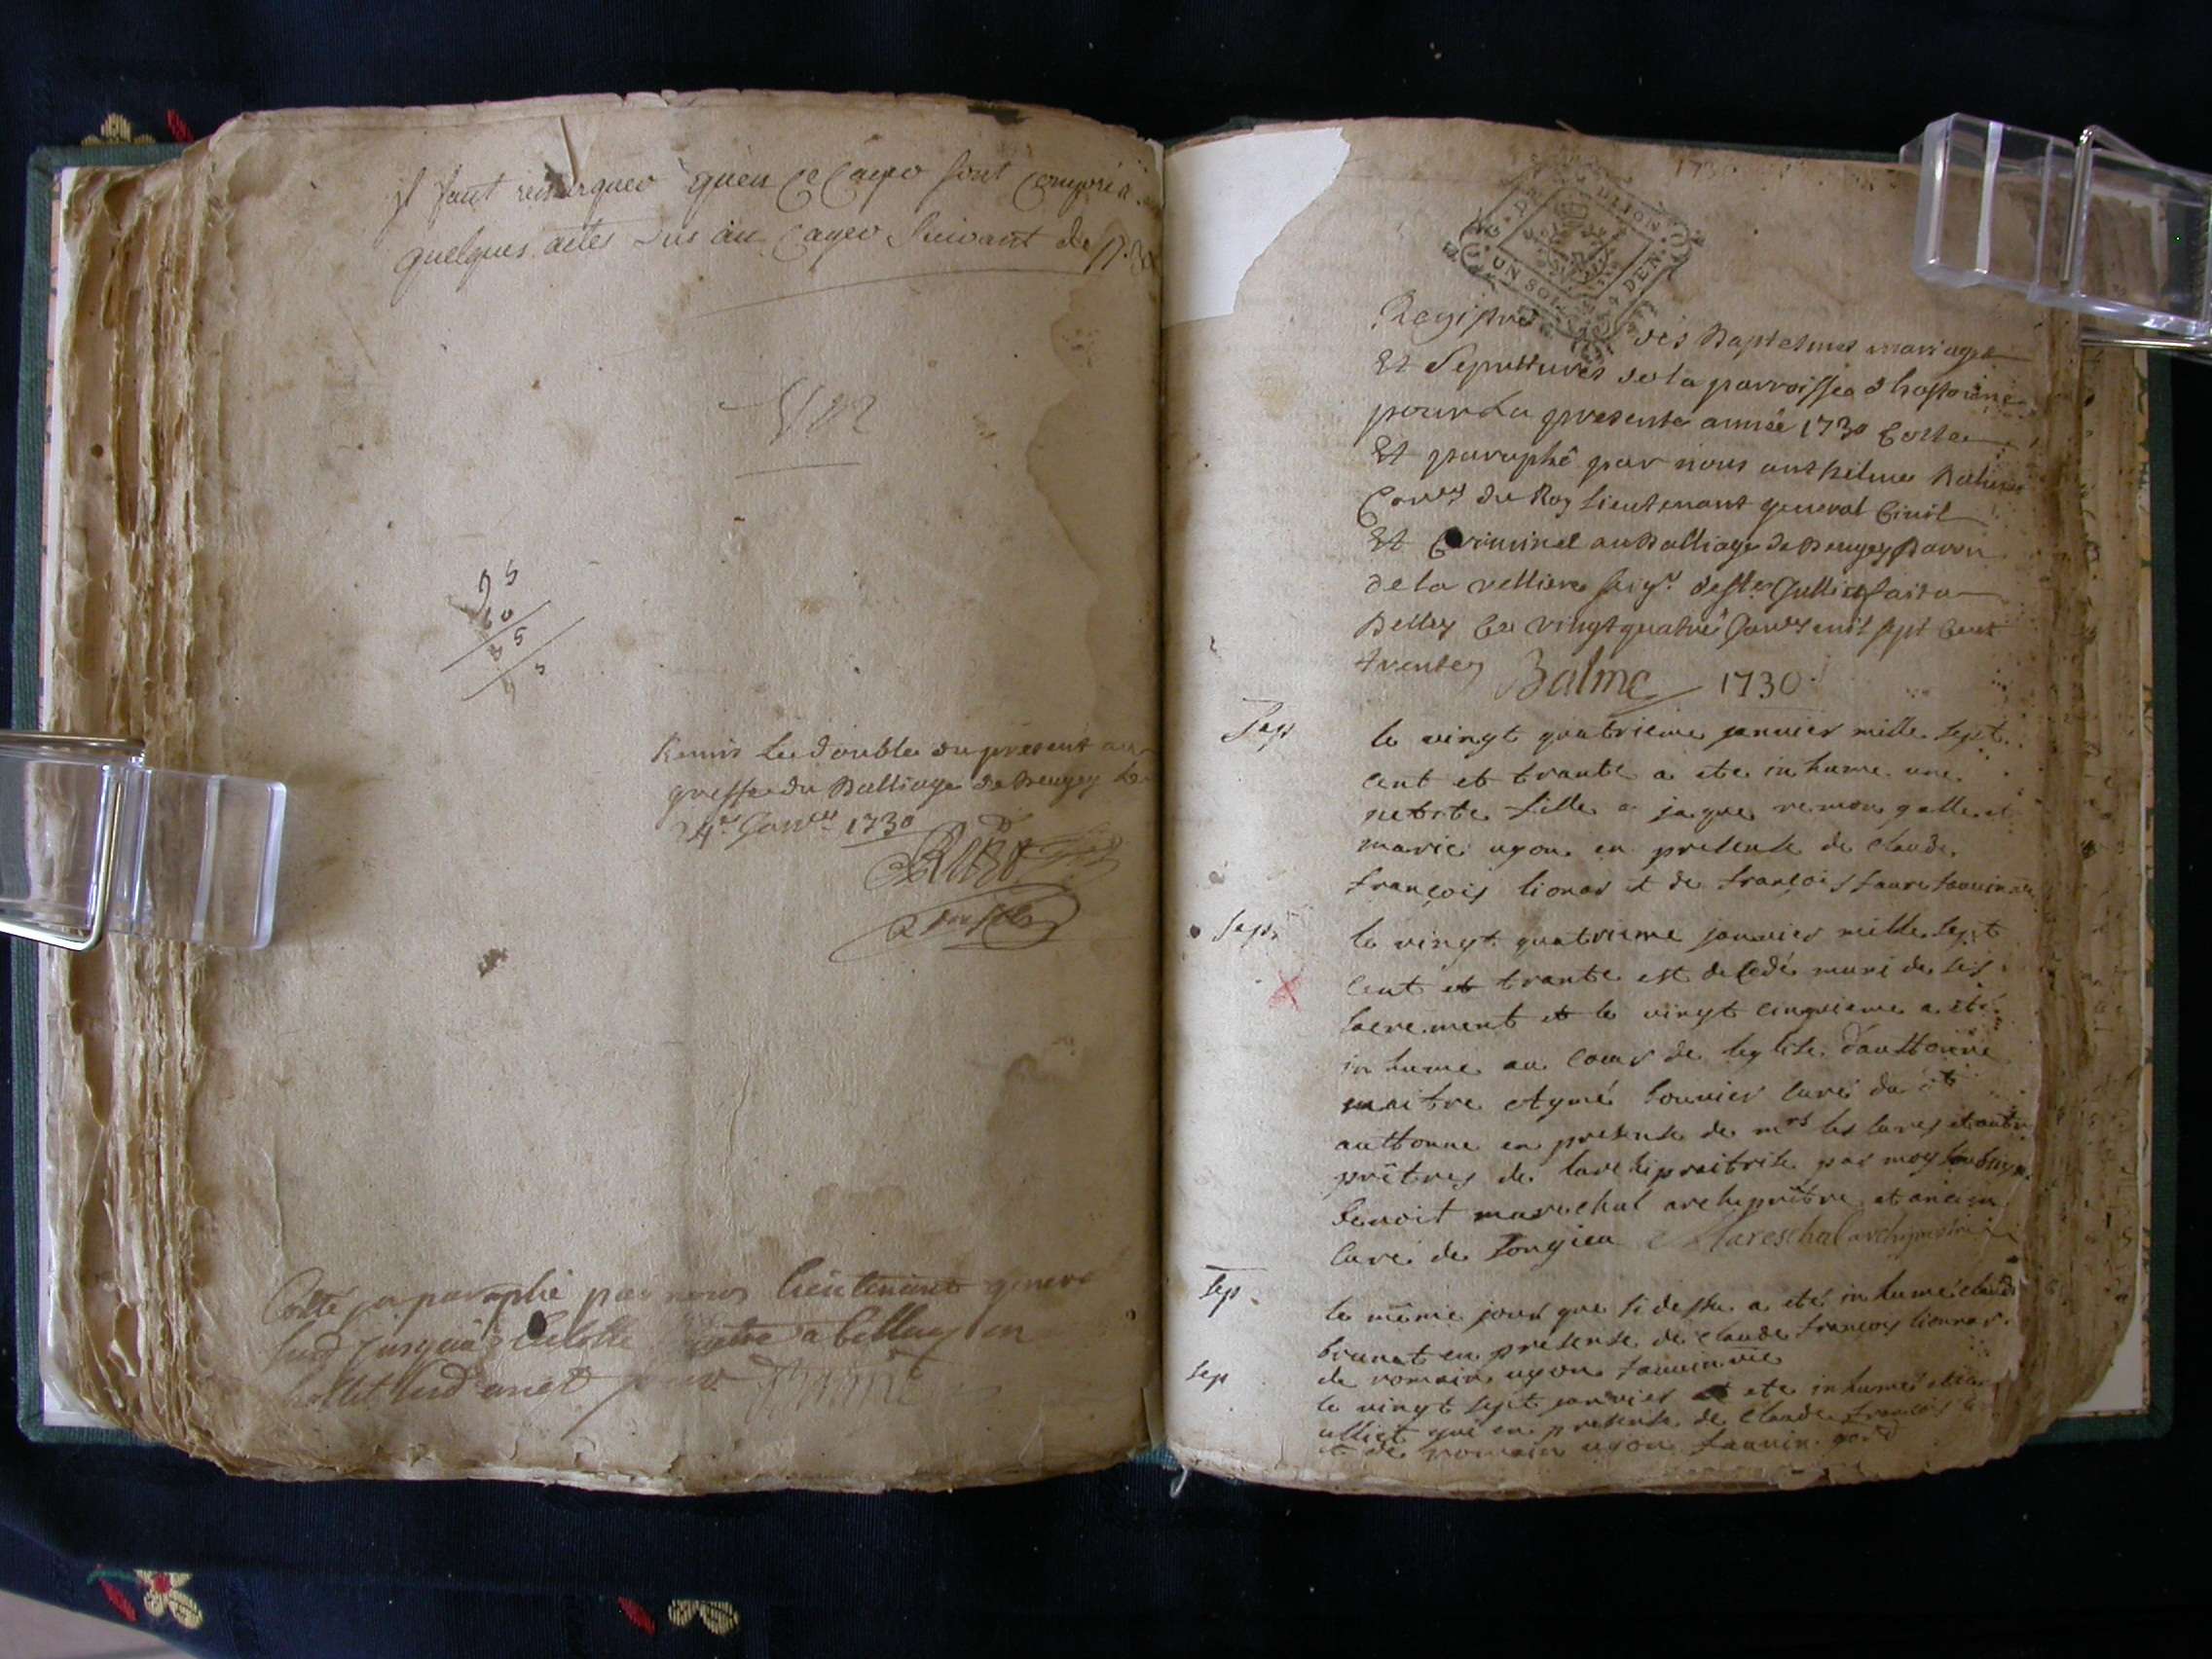 il faut remarquer quen ce Cayer sont compris
quelques actes du Cayer suivant de
95
60
35
Remis le double du present au
greffe du Balliage de Beugey le
24e Janver 1730
Cotté et paraphé par nous lieutenant genera
a belley
1730
DIJON
UN SOL 4 DEN
Registre des Baptesmes mariages
Et Sepultures de la parroisse d'hostonne
pour La presente année 1730 Cotte
Et paraphé par nous anthelme Balme
Conser du Roy Lieutenant general Civil
Et Criminel au Balliage de Beugey Baron
de la velliere seigr de ste Jullie fait a
Belley le vingtquatre Janver mil sept cent
trente Balme 1730
Sep
le vingt quatrieme janvier mille sept
cent et trante a ete inhume une
petite fille a jaque remon galle et
marie ugon en presense de claude
françois lionar et de françois faure
Sep
le vingt quatrieme janvier mille sept
cent et trante est decedé muni de ses
sacrement et le vingt cinquieme a ete
inhume au cœur de leglise dauttonne
maitre Aymé bouvier curé du dt
auttonne en presense de mrs les cures et autr
prêtres de larchipraitrise par moy soubsign
benoit marechal archiprêtre et ancien
curé de songieu Mareschal archipretre
Sep
le même jour que si dessu a eté inhumé claude
brunet en presense de claude françois lionnar
de romain ugon
sep
le vingt sept janvier a ete inhumé
ulliet en presense de claude françois
et de romain ugon